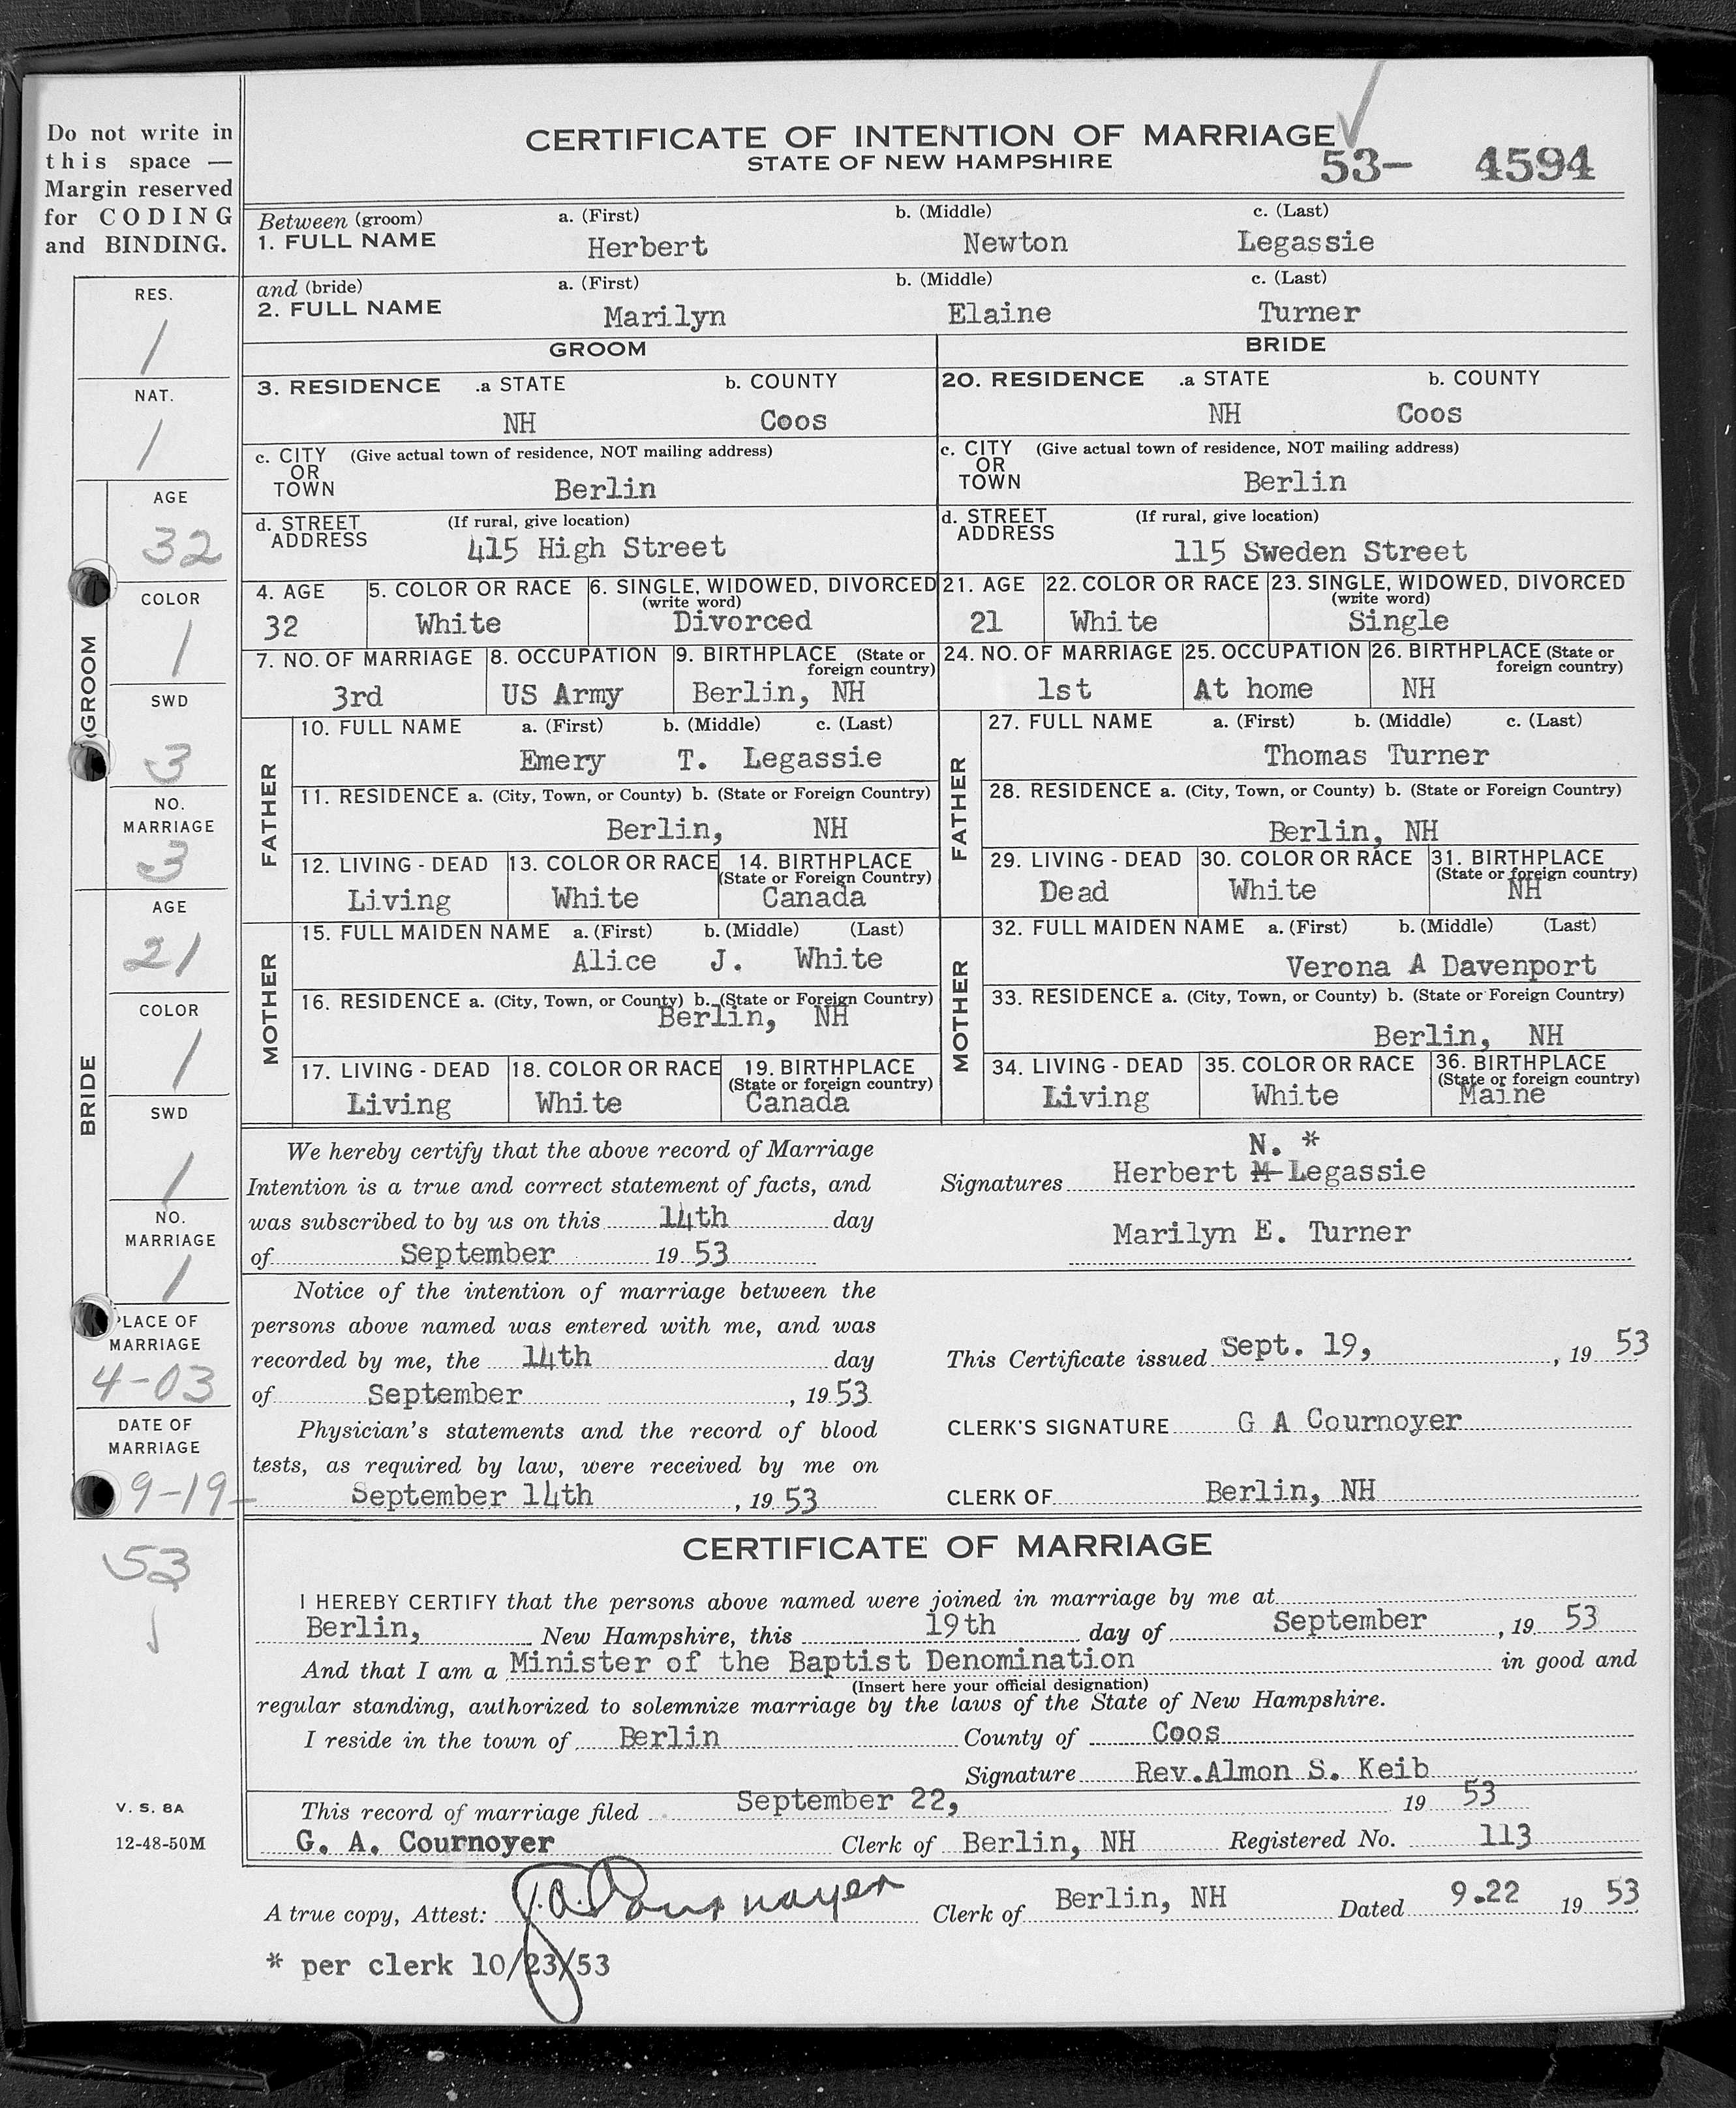 Do not write in
this space —
Margin reserved
for CODING
and BINDING.
CERTIFICATE OF INTENTION OF MARRIAGE
STATE OF NEW HAMPSHIRE
53- 4594
Between (groom) a. (First) b. (Middle) c. (Last)
1. FULL NAME Herbert Newton Legassie
and (bride) a. (First) b. (Middle) c. (Last)
2. FULL NAME Marilyn Elaine Turner
RES.
1
NAT.
1
GROOM
AGE
32
COLOR
1
SWD
3
NO.
MARRIAGE
3
BRIDE
AGE
21
COLOR
1
SWD
1
NO.
MARRIAGE
1
PLACE OF
MARRIAGE
4-03
DATE OF
MARRIAGE
9-19-
53
V. S. 8A
12-48-50M
GROOM
3. RESIDENCE .a STATE b. COUNTY
NH Coos
c. CITY (Give actual town of residence, NOT mailing address)
OR
TOWN Berlin
d. STREET (If rural, give location)
ADDRESS 415 High Street
4. AGE 5. COLOR OR RACE 6. SINGLE, WIDOWED, DIVORCED
(write word)
32 White Divorced
7. NO. OF MARRIAGE 8. OCCUPATION 9. BIRTHPLACE (State or
foreign country)
3rd US Army Berlin, NH
FATHER
10. FULL NAME a. (First) b. (Middle) c. (Last)
Emery T. Legassie
11. RESIDENCE a. (City, Town, or County) b. (State or Foreign Country)
Berlin, NH
12. LIVING - DEAD 13. COLOR OR RACE 14. BIRTHPLACE
(State or Foreign Country)
Living White Canada
MOTHER
15. FULL MAIDEN NAME a. (First) b. (Middle) (Last)
Alice J. White
16. RESIDENCE a. (City, Town, or County) b. (State or Foreign Country)
Berlin, NH
17. LIVING - DEAD 18. COLOR OR RACE 19. BIRTHPLACE
(State or foreign country)
Living White Canada
BRIDE
20. RESIDENCE .a STATE b. COUNTY
NH Coos
c. CITY (Give actual town of residence, NOT mailing address)
OR
TOWN Berlin
d. STREET (If rural, give location)
ADDRESS 115 Sweden Street
21. AGE 22. COLOR OR RACE 23. SINGLE, WIDOWED, DIVORCED
(write word)
21 White Single
24. NO. OF MARRIAGE 25. OCCUPATION 26. BIRTHPLACE (State or
foreign country)
1st At home NH
FATHER
27. FULL NAME a. (First) b. (Middle) c. (Last)
Thomas Turner
28. RESIDENCE a. (City, Town, or County) b. (State or Foreign Country)
Berlin, NH
29. LIVING - DEAD 30. COLOR OR RACE 31. BIRTHPLACE
(State or foreign country)
Dead White NH
MOTHER
32. FULL MAIDEN NAME a. (First) b. (Middle) (Last)
Verona A Davenport
33. RESIDENCE a. (City, Town, or County) b. (State or Foreign Country)
Berlin, NH
34. LIVING - DEAD 35. COLOR OR RACE 36. BIRTHPLACE
(State or foreign country)
Living White Maine
We hereby certify that the above record of Marriage
Intention is a true and correct statement of facts, and
was subscribed to by us on this 14th day
of September 19 53
N. *
Signatures Herbert M Legassie
Marilyn E. Turner
Notice of the intention of marriage between the
persons above named was entered with me, and was
recorded by me, the 14th day
of September , 19 53
Physician's statements and the record of blood
tests, as required by law, were received by me on
September 14th , 19 53
This Certificate issued Sept. 19, , 19 53
CLERK'S SIGNATURE G A Cournoyer
CLERK OF Berlin, NH
CERTIFICATE OF MARRIAGE
I HEREBY CERTIFY that the persons above named were joined in marriage by me at
Berlin, New Hampshire, this 19th day of September , 19 53
And that I am a Minister of the Baptist Denomination in good and
(Insert here your official designation)
regular standing, authorized to solemnize marriage by the laws of the State of New Hampshire.
I reside in the town of Berlin County of Coos
Signature Rev.Almon S. Keib
This record of marriage filed September 22, 19 53
G. A. Cournoyer Clerk of Berlin, NH Registered No. 113
A true copy, Attest: G.A. Cournoyer Clerk of Berlin, NH Dated 9.22 19 53
* per clerk 10/23/53